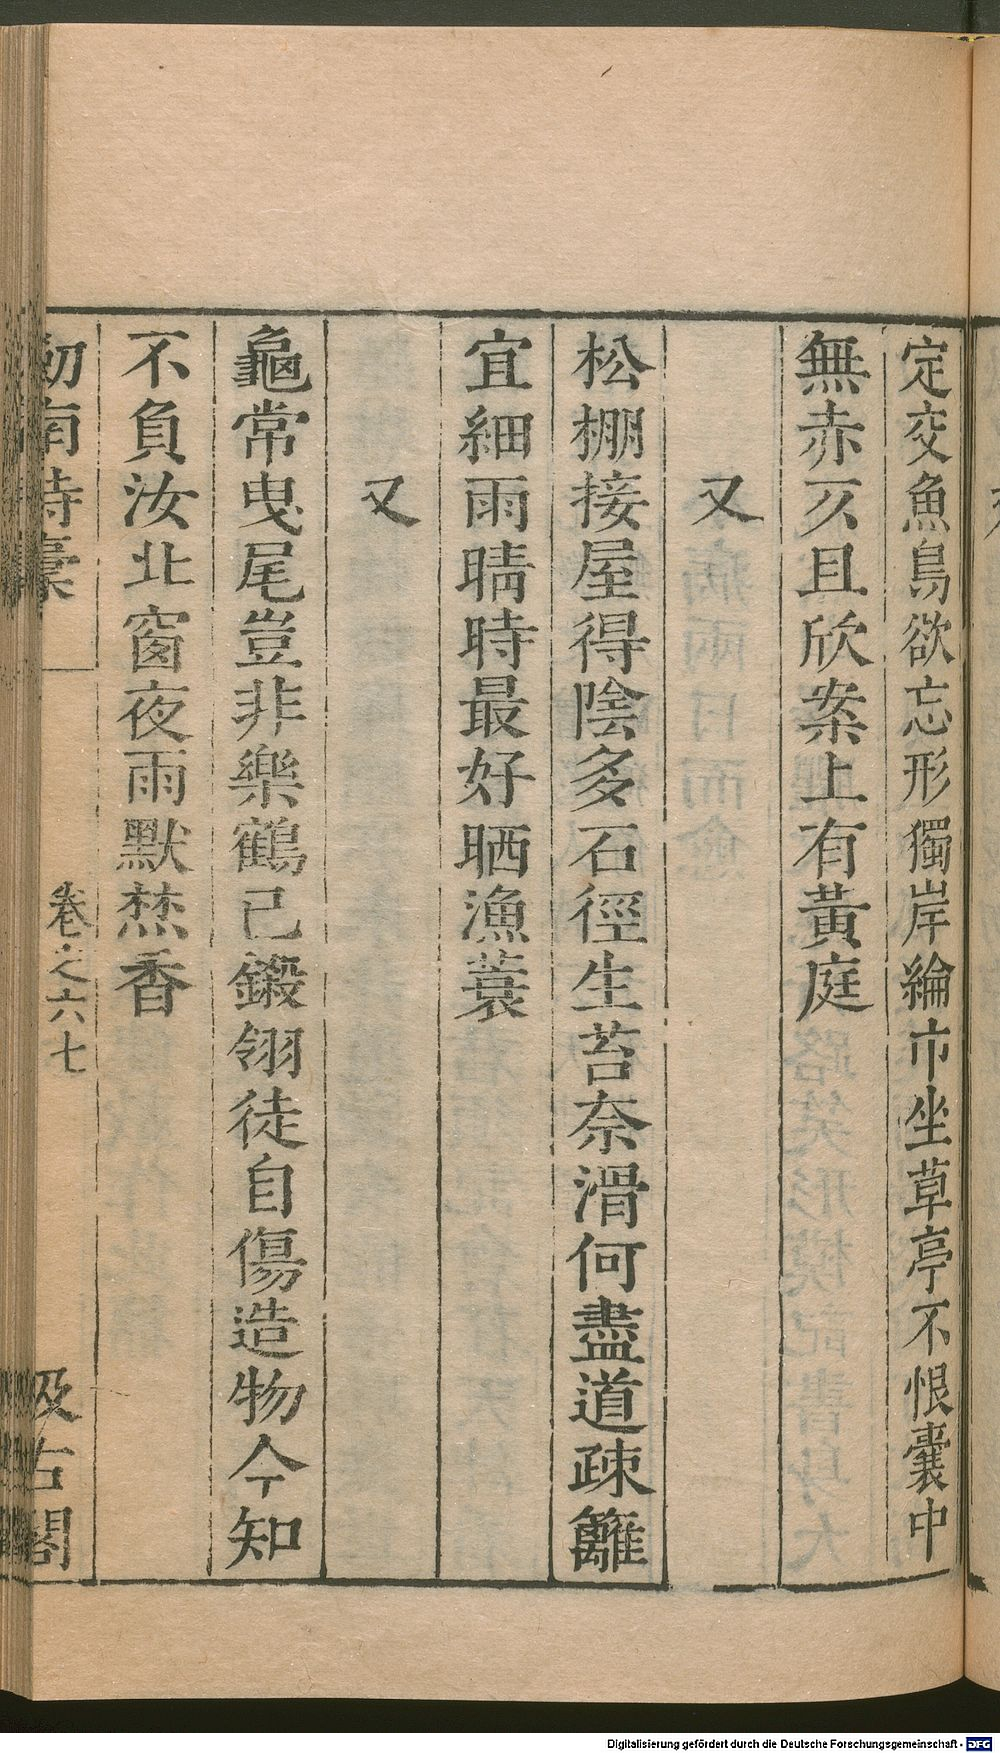 定交魚鳥欲忘形獨岸綸巾坐草亭不恨囊中
無赤仄且欣案上有黃庭
又
松棚接屋得陰多石徑生苔奈滑何盡道疎籬
宜細雨晴時最好晒漁蓑
又
龜常曳尾豈非樂鶴已鍛翎徒自傷造物今知
不負汝北窗夜雨默焚香
劒南詩稾
卷之六七
汲古閣
Digitalisierung gefördert durch die Deutsche Forschungsgemeinschaft - DFG